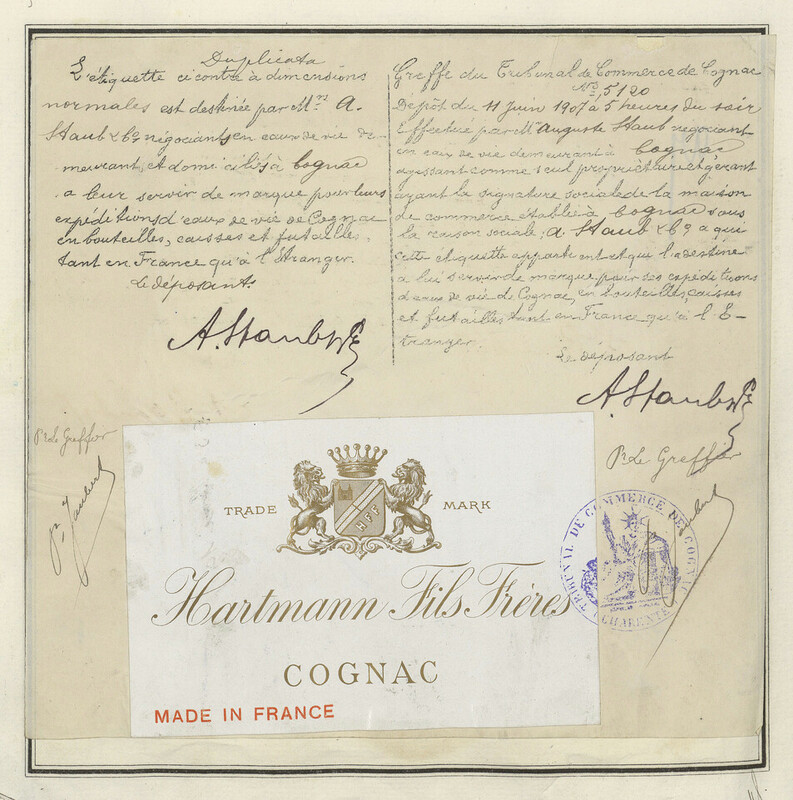 Duplicata
L'étiquette ci contre à dimensions
normales est destinée par Mrs A.
Staub & Co négociants en eaux de vie de-
meurant, et domiciliés à Cognac
a leur servir de marque pour leurs
expéditions d'eaux de vie de Cognac
en bouteilles, caisses et futailles,
tant en France qu'à l'Etranger.
Le déposant.
A. Staub & Co
Greffe du Tribunal de Commerce de Cognac
No 5120
Dépôt du 11 Juin 1907 à 5 heures du soir
Effectué par Mr Auguste Staub négociant
en eaux de vie demeurant à Cognac
agissant comme seul propriétaire et gérant
ayant la signature sociale de la maison
de commerce établie à Cognac sous
la raison sociale, A. Staub & Co a qui
cette etiquette appartient et qui l'a destine
a lui servir de marque pour ses expéditions
d'eaux de vie de Cognac, en bouteilles, caisses
et futailles tant en France qu'à l'E-
tranger.
Le déposant
A. Staub & Co
Pr Le Greffier
Pr Le Greffier
TRADE MARK
HFF
Hartmann Fils Frères
COGNAC
MADE IN FRANCE
TRIBUNAL DE COMMERCE DE COGNAC
(CHARENTE)